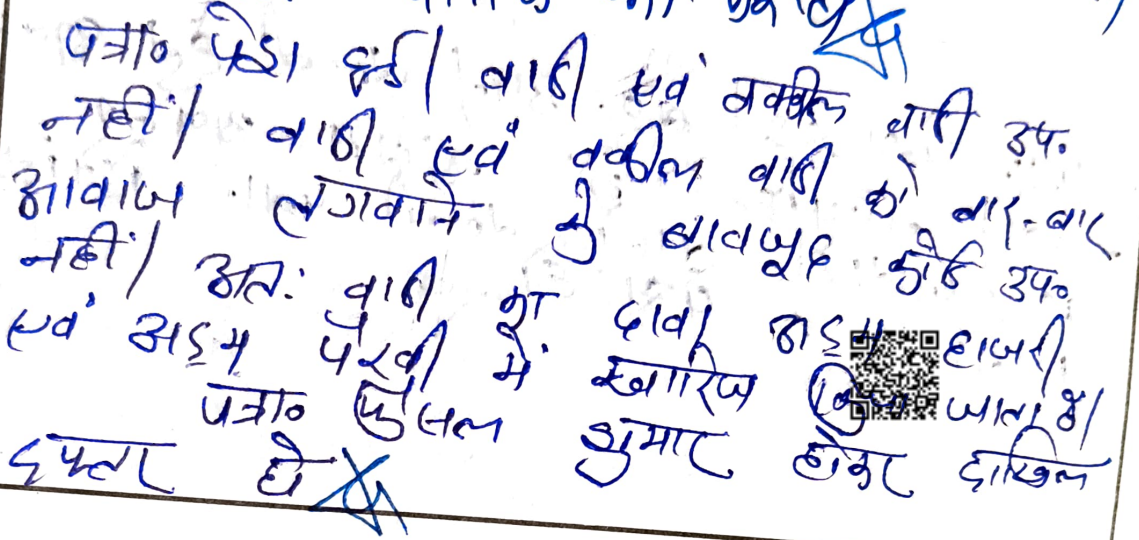 पत्रा० पेश हुई। वादी एवं वकील वादी उप०
नहीं। वादी एवं वकील वादी को बार-बार
आवाज लगवाने के बावजूद कोई उप०
नहीं। अतः वादी का दावा अदम हाजरी
एवं अदम पैरवी में खारिज किया जाता है।
पत्रा० फैसल शुमार होकर दाखिल
दफ्तर हो